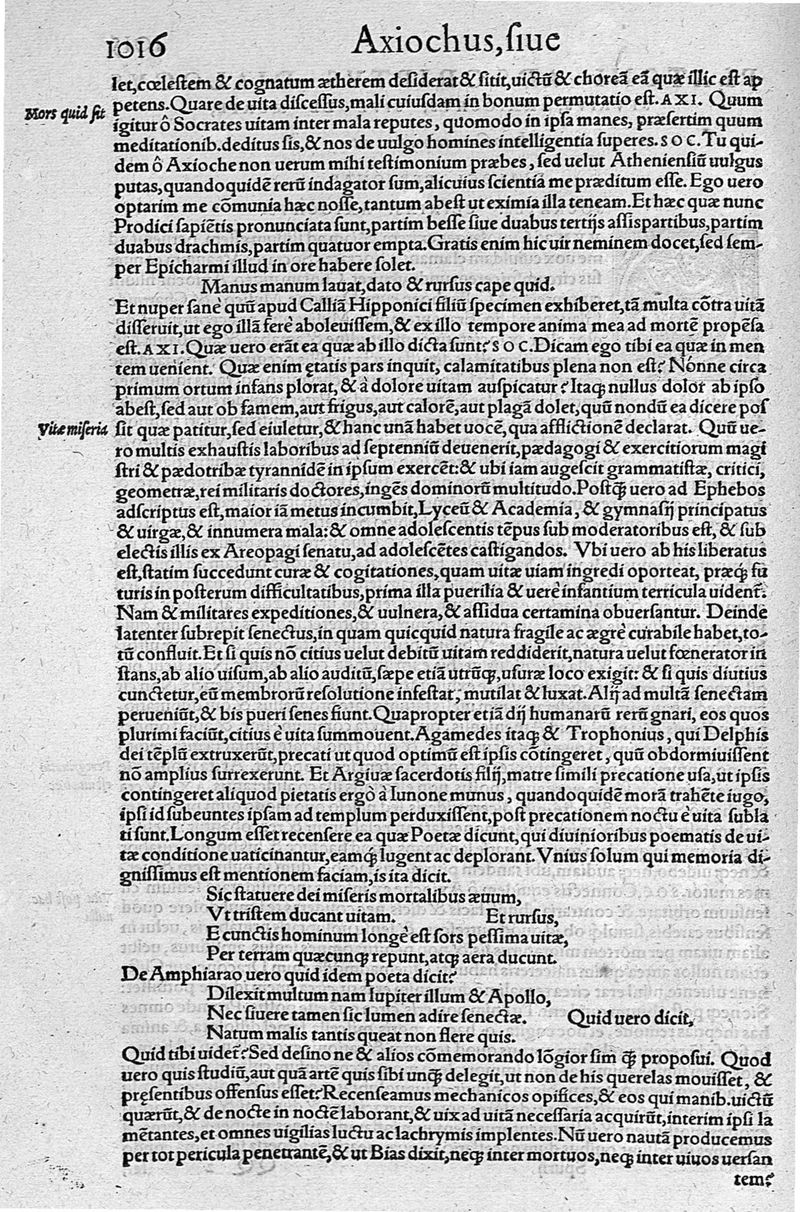 1016 Axiochus, ſiue
let, cœleſtem & cognatum ætherem deſiderat & ſitit, uictū & choreā eā quæ illic eſt ap
Mors quid ſit
petens. Quare de uita diſceſſus, mali cuiuſdam in bonum permutatio eſt. AXI. Quum
igitur ô Socrates uitam inter mala reputes, quomodo in ipſa manes, præſertim quum
meditationib. deditus ſis, & nos de uulgo homines intelligentia ſuperes. SOC. Tu qui-
dem ô Axioche non uerum mihi teſtimonium præbes, ſed uelut Athenienſiū uulgus
putas, quandoquidē rerū indagator ſum, alicuius ſcientia me præditum eſſe. Ego uero
optarim me cōmunia hæc noſſe, tantum abeſt ut eximia illa teneam. Et hæc quæ nunc
Prodici ſapiētis pronunciata ſunt, partim beſſe ſiue duabus tertijs aſſispartibus, partim
duabus drachmis, partim quatuor empta. Gratis enim hic uir neminem docet, ſed ſem-
per Epicharmi illud in ore habere ſolet.
Manus manum lauat, dato & rurſus cape quid.
Et nuper ſanè quū apud Calliā Hipponici filiū ſpecimen exhiberet, tā multa cōtra uitā
diſſeruit, ut ego illā ferè aboleuiſſem, & ex illo tempore anima mea ad mortē propēſa
eſt. AXI. Quæ uero erāt ea quæ ab illo dicta ſunt? SOC. Dicam ego tibi ea quæ in men
tem uenient. Quæ enim ętatis pars inquit, calamitatibus plena non eſt? Nónne circa
primum ortum infans plorat, & à dolore uitam auſpicatur? Itaq; nullus dolor ab ipſo
abeſt, ſed aut ob famem, aut frigus, aut calorē, aut plagā dolet, quū nondū ea dicere poſ
Vitæ miſeria
ſit quæ patitur, ſed eiuletur, & hanc unā habet uocē, qua afflictionē declarat. Quū ue-
ro multis exhauſtis laboribus ad ſeptenniū deuenerit, pædagogi & exercitiorum magi
ſtri & pædotribæ tyrannidē in ipſum exercēt: & ubi iam augeſcit grammatiſtæ, critici,
geometræ, rei militaris doctores, ingēs dominorū multitudo. Poſtq̄ uero ad Ephebos
adſcriptus eſt, maior iā metus incumbit, Lyceū & Academia, & gymnaſij principatus
& uirgæ, & innumera mala: & omne adoleſcentis tēpus ſub moderatoribus eſt, & ſub
electis illis ex Areopagi ſenatu, ad adoleſcētes caſtigandos. Vbi uero ab his liberatus
eſt, ſtatim ſuccedunt curæ & cogitationes, quam uitæ uiam ingredi oporteat, præq; fu
turis in poſterum difficultatibus, prima illa puerilia & uerè infantium terricula uident̃.
Nam & militares expeditiones, & uulnera, & aſſidua certamina obuerſantur. Deinde
latenter ſubrepit ſenectus, in quam quicquid natura fragile ac ægrè curabile habet, to-
tū confluit. Et ſi quis nō citius uelut debitū uitam reddiderit, natura uelut fœnerator in
ſtans, ab alio uiſum, ab alio auditū, ſæpe etiā utrūq;, uſuræ loco exigit: & ſi quis diutius
cunctetur, eū membrorū reſolutione infeſtat, mutilat & luxat. Alij ad multā ſenectam
perueniūt, & bis pueri ſenes fiunt. Quapropter etiā dij humanarū rerū gnari, eos quos
plurimi faciūt, citius è uita ſummouent. Agamedes itaq; & Trophonius, qui Delphis
dei tēplū extruxerūt, precati ut quod optimū eſt ipſis cōtingeret, quū obdormiuiſſent
nō amplius ſurrexerunt. Et Argiuæ ſacerdotis filij, matre ſimili precatione uſa, ut ipſis
contingeret aliquod pietatis ergò à Iunone munus, quandoquidē morā trahēte iugo,
ipſi id ſubeuntes ipſam ad templum perduxiſſent, poſt precationem noctu è uita ſubla
ti ſunt. Longum eſſet recenſere ea quæ Poetæ dicunt, qui diuinioribus poematis de ui-
tæ conditione uaticinantur, eamq́; lugent ac deplorant. Vnius ſolum qui memoria di-
gniſſimus eſt mentionem faciam, is ita dicit.
Sic ſtatuere dei miſeris mortalibus æuum,
Vt triſtem ducant uitam. Et rurſus,
E cunctis hominum longè eſt ſors peſſima uitæ,
Per terram quæcunq; repunt, atq; aera ducunt.
De Amphiarao uero quid idem poeta dicit?
Dilexit multum nam Iupiter illum & Apollo,
Nec ſiuere tamen ſic lumen adire ſenectæ. Quid uero dicit,
Natum malis tantis queat non flere quis.
Quid tibi uidet̃? Sed deſino ne & alios cōmemorando lōgior ſim q̄ propoſui. Quod
uero quis ſtudiū, aut quā artē quis ſibi unq̄ delegit, ut non de his querelas mouiſſet, &
pręſentibus offenſus eſſet? Recenſeamus mechanicos opifices, & eos qui manib. uictū
quærūt, & de nocte in noctē laborant, & uix ad uitā neceſſaria acquirūt, interim ipſi la
mētantes, et omnes uigilias luctu ac lachrymis implentes. Nū uero nautā producemus
per tot pericula penetrantē, & ut Bias dixit, neq; inter mortuos, neq; inter uiuos uerſan
tem?